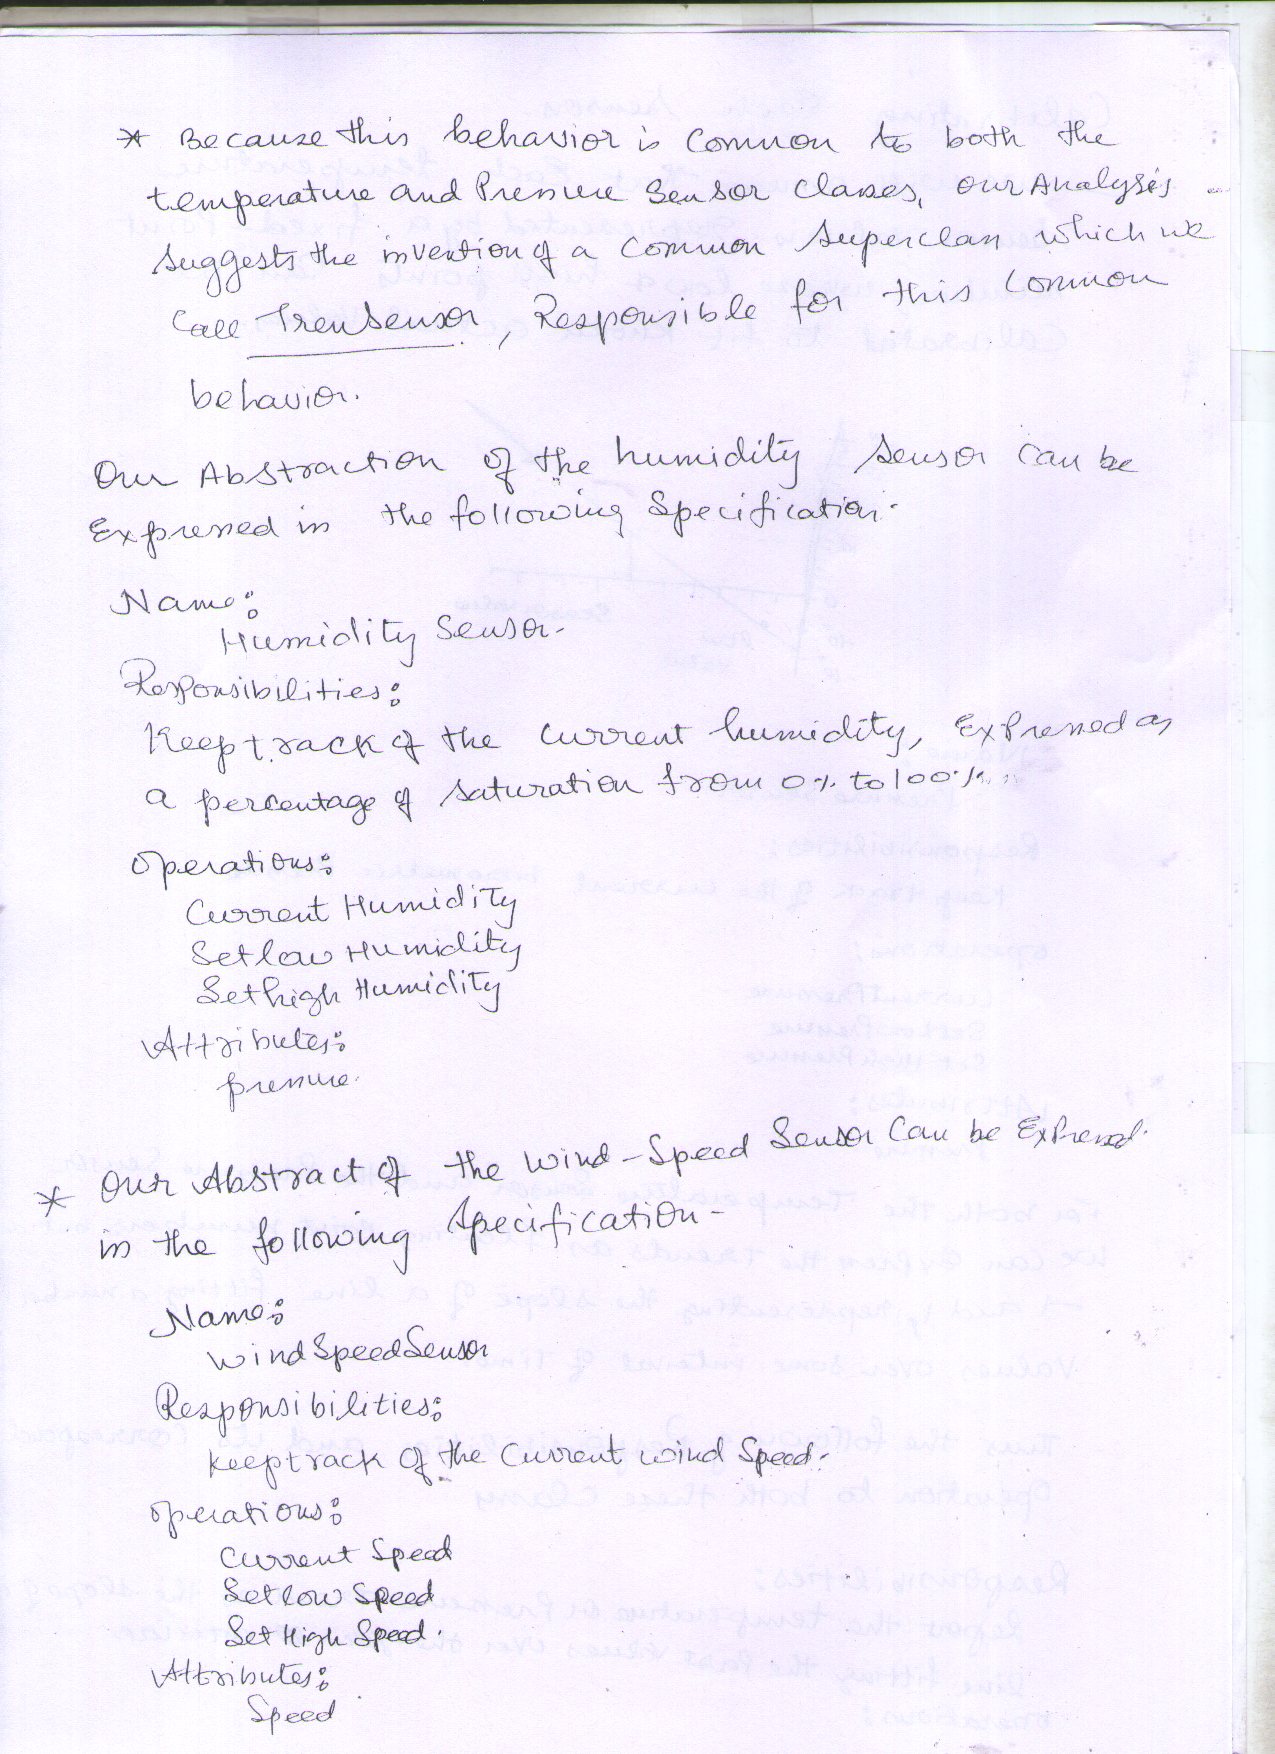 * Because this behavior is Common to both the
temperature and Pressure Sensor Classes, our Analysis
suggests the invention of a Common Superclass which we
Call TrenSensor, Responsible for this Common
behavior.
Our Abstraction of the humidity Sensor Can be
Expressed in the following Specification.
Name:
Humidity Sensor.
Responsibilities:
Keep track of the current humidity, Expressed as
a percentage of saturation from 0% to 100%.
Operations:
Current Humidity
Set low Humidity
Set high Humidity
Attributes:
pressure.
* Our Abstract of the Wind-Speed Sensor Can be Expressed.
in the following Specification-
Name:
WindSpeedSensor
Responsibilities:
Keep track of the Current Wind Speed.
Operations:
Current Speed
Set low Speed
Set High Speed.
Attributes:
Speed